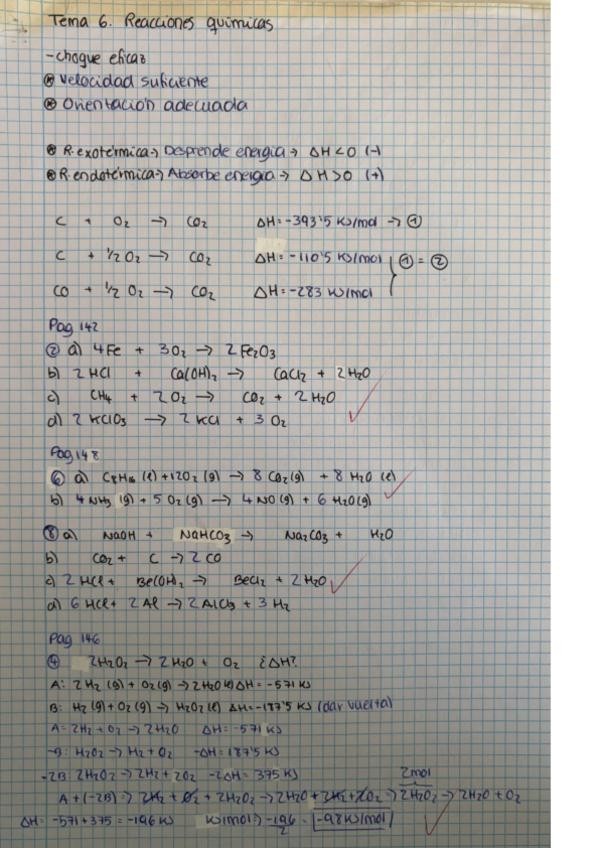 Tema 6. Reacciones químicas
-choque eficaz
⊛ Velocidad suficiente
⊛ Orientación adecuada
⊛ R. exotérmica → Desprende energía → ΔH<0 (-)
⊛ R. endotérmica → Absorbe energía → ΔH>0 (+)
C + O₂ → CO₂ ΔH=-393'5 KJ/mol → ①
C + ½ O₂ → CO₂ ΔH=-110'5 KJ/mol } ① = ②
CO + ½ O₂ → CO₂ ΔH=-283 KJ/mol
Pag 142
② a) 4Fe + 3O₂ → 2Fe₂O₃
b) 2HCl + Ca(OH)₂ → CaCl₂ + 2H₂O
c) CH₄ + 2O₂ → CO₂ + 2H₂O
d) 2KClO₃ → 2KCl + 3O₂
Pag 148
⑥ a) C₈H₁₆ (l) + 12O₂ (g) → 8CO₂(g) + 8H₂O (l)
b) 4NH₃ (g) + 5O₂(g) → 4NO(g) + 6H₂O(g)
⑧ a) NaOH + NaHCO₃ → Na₂CO₃ + H₂O
b) CO₂ + C → 2CO
c) 2HCl + Be(OH)₂ → BeCl₂ + 2H₂O
d) 6HCl + 2Al → 2AlCl₃ + 3H₂
Pag 146
④ 2H₂O₂ → 2H₂O + O₂ ¿ΔH?
A: 2H₂ (g) + O₂(g) → 2H₂O ΔH=-571 KJ
B: H₂(g) + O₂(g) → H₂O₂(l) ΔH=-187'5 KJ (dar vuelta)
A = 2H₂ + O₂ → 2H₂O ΔH=-571 KJ
-B: H₂O₂ → H₂ + O₂ -ΔH=187'5 KJ
-2B: 2H₂O₂ → 2H₂ + 2O₂ -2ΔH= 375 KJ
2mol
A+(-2B) → 2H₂ + O₂ + 2H₂O₂ → 2H₂O + 2H₂ + 2O₂ → 2H₂O₂ → 2H₂O + O₂
ΔH= -571+375 = -196 KJ KJ/mol → -196/2 = -98 KJ/mol